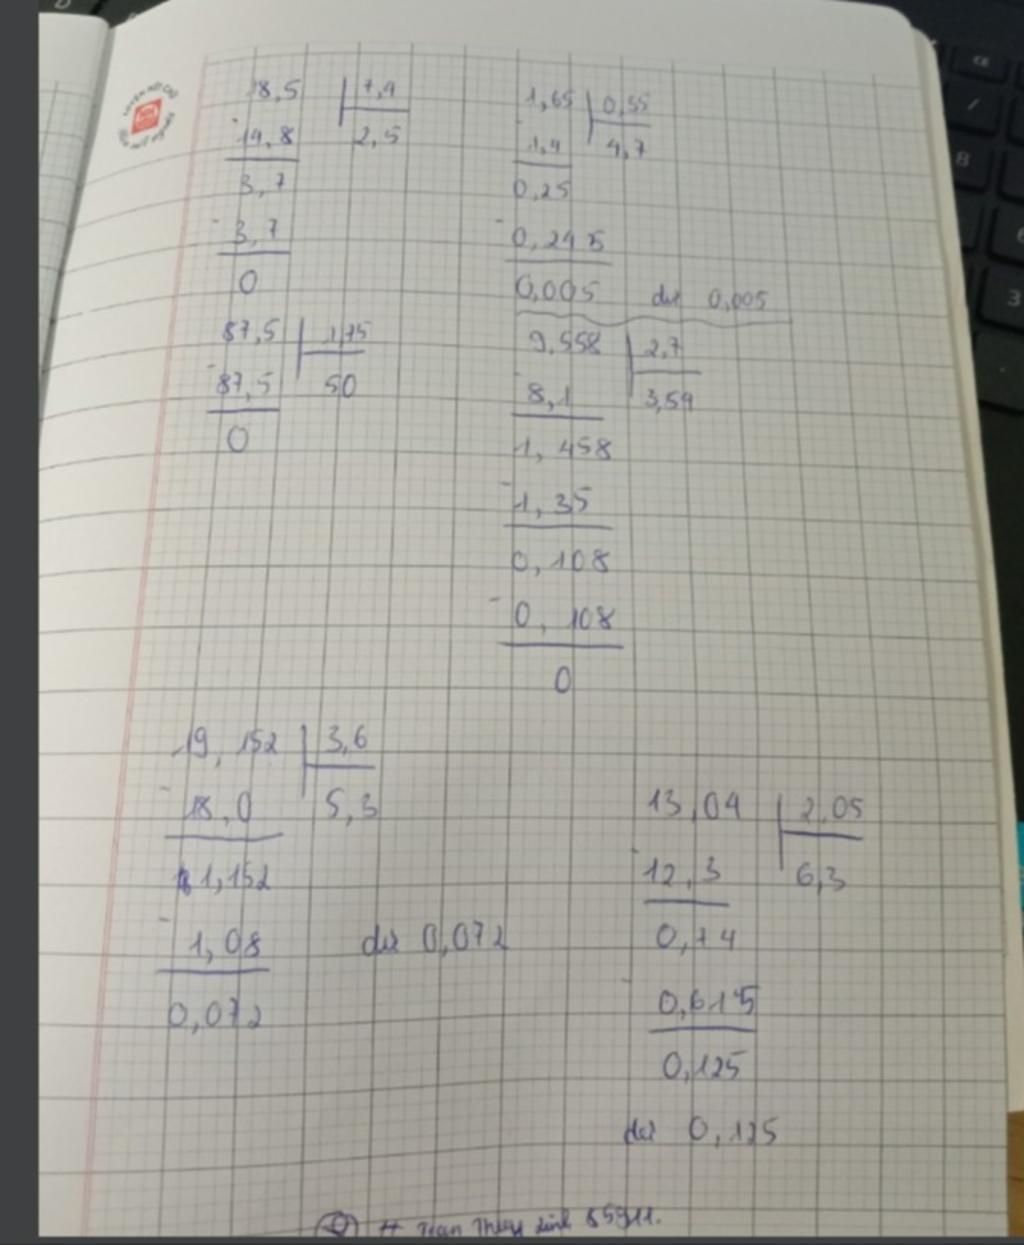 18,5 7,4
- 14,8 2,5
3,7
- 3,7
0
1,65 0,35
- 1,4 4,7
0,25
- 0,245
0,005 dư 0,005
87,5 1,75
- 87,5 50
0
9,558 2,7
- 8,1 3,54
1,458
- 1,35
0,108
- 0,108
0
19,152 3,6
- 18,0 5,3
1,152
- 1,08 dư 0,072
0,072
13,04 2,05
- 12,3 6,3
0,74
- 0,615
0,125
dư 0,125